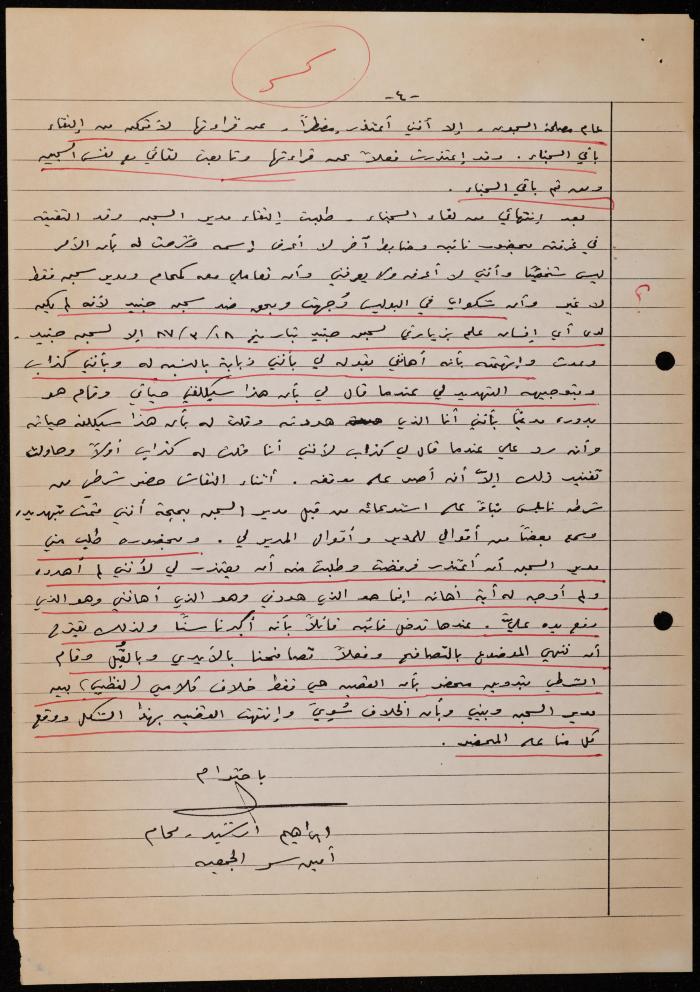 -٤-
عام مصلحة السجون، إلا أنني أعتذر مضطراً، عن قراءتها لأتمكن من إلتقاء
باقي السجناء. وقد إعتذرت فعلاً عن قراءتها وتابعت لقائي مع نفس السجين
ومن ثم باقي السجناء.
بعد إنتهائي من لقاء السجناء، طلبت إلتقاء مدير السجن وقد التقيته
في غرفته بحضور نائبه وضابط آخر لا أعرف إسمه وشرحت له بأن الأمر
ليس شخصيًا وأنني لا أعرفه ولا يعرفني وأن تعاملي معه كمحام ومدير سجن فقط
لا غير وأن شكواي في البوليس وُجهت وبحق ضد سجن جنيد لأنه لم يكن
لدى أي إنسان علم بزيارتي لسجن جنيد بتاريخ ٨٧/٣/١٨ إلا لسجن جنيد.
وعدت وإتهمته بأنه أهانني بقوله لي بأنني ذبابة بالنسبه له وبأنني كذاب
وبتوجيهه التهديد لي عندما قال لي بأن هذا سيكلفني حياتي وقام هو
بدوره مدعيًا بأنني أنا الذي هددته وقلت له بأن هذا سيكلفه حياته
وأنه رد علي عندما قال لي كذاب لأنني أنا قلت له كذاب أولاً وحاولت
تفنيد ذلك إلا أنه أصر على موقفه. أثناء النقاش حضر شرطي من
شرطة نابلس بناءً على استدعائه من قبل مدير السجن بحجة أنني قمت بتهديده
وسمع بعضًا من أقوالي للمدير وأقوال المدير لي. وبحضوره طلب مني
مدير السجن أن أعتذر فرفضت وطلبت منه أن يعتذر لي لأنني لم أهدده
ولم أوجه له أية أهانه إنما هو الذي هددني وهو الذي أهانني وهو الذي
رفع يده عليّ. عندها تدخل نائبه قائلاً بأنه أكبرنا سنًا ولذلك يقترح
أن ننهي الموضوع بالتصافح وفعلاً تصافحنا بالأيدي وبالقُبل وقام
الشرطي بتدوين محضر بأن القضيه هي فقط خلاف كلامي (لفظي) بين
مدير السجن وبيني وبأن الخلاف سُويّ وإنتهت القضيه بهذا الشكل ووقع
كل منا على المحضر.
باحترام
ابراهيم ارشيد، محام
أمين سر الجمعيه
؟